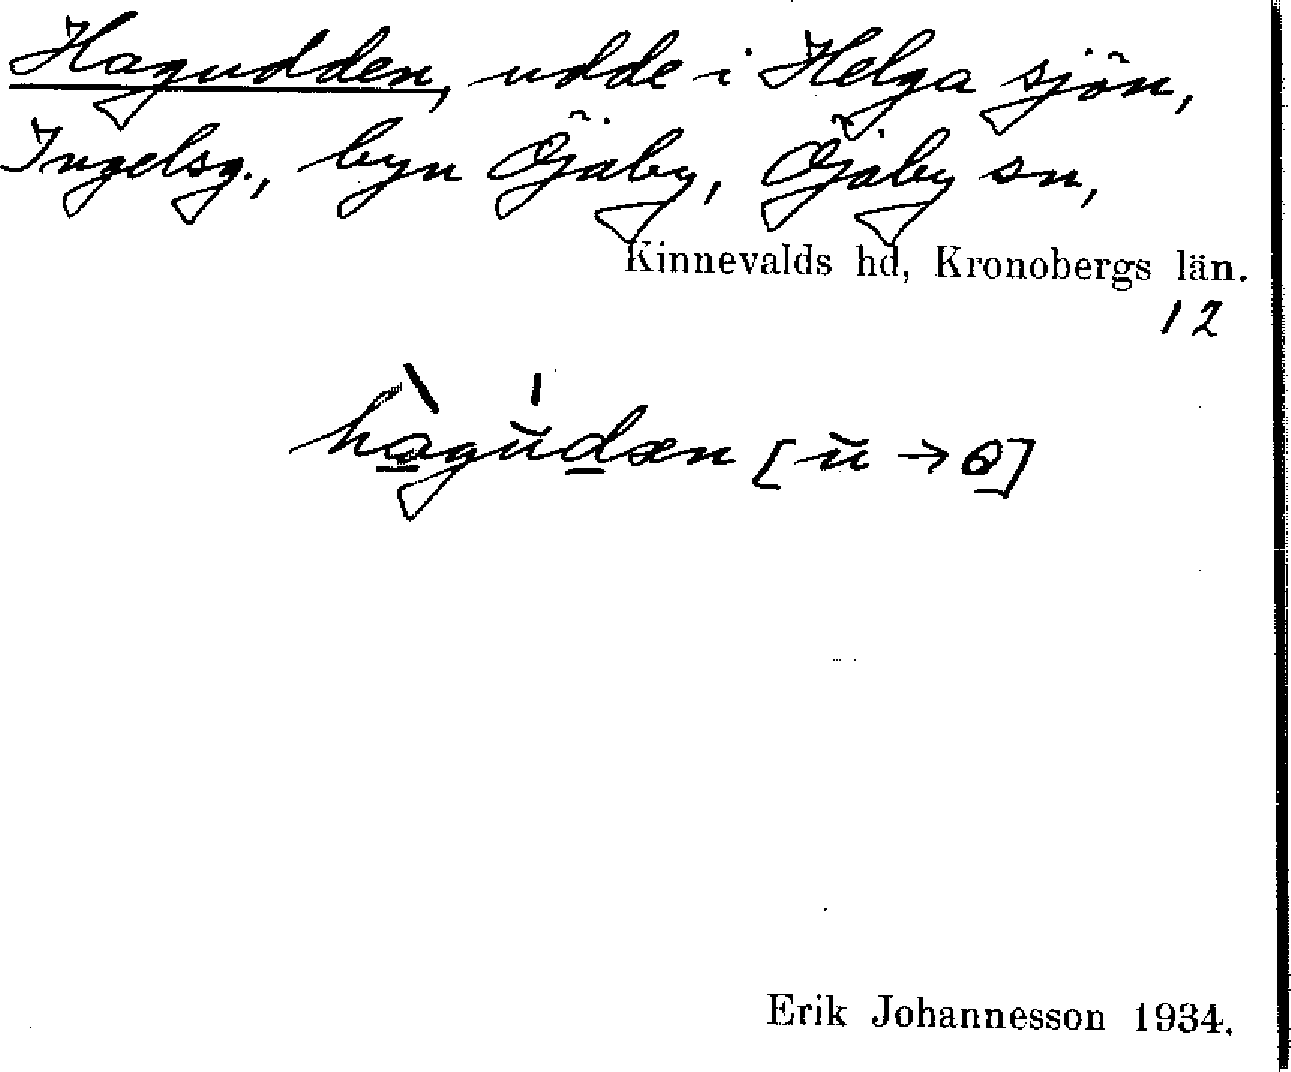 Hagudden, udde i Helga sjön,
Ingelsg., byn Öjaby, Öjaby sn,
Kinnevalds hd, Kronobergs län.
12
hàgŭ́dæn [ŭ → ]
Erik Johannesson 1934.